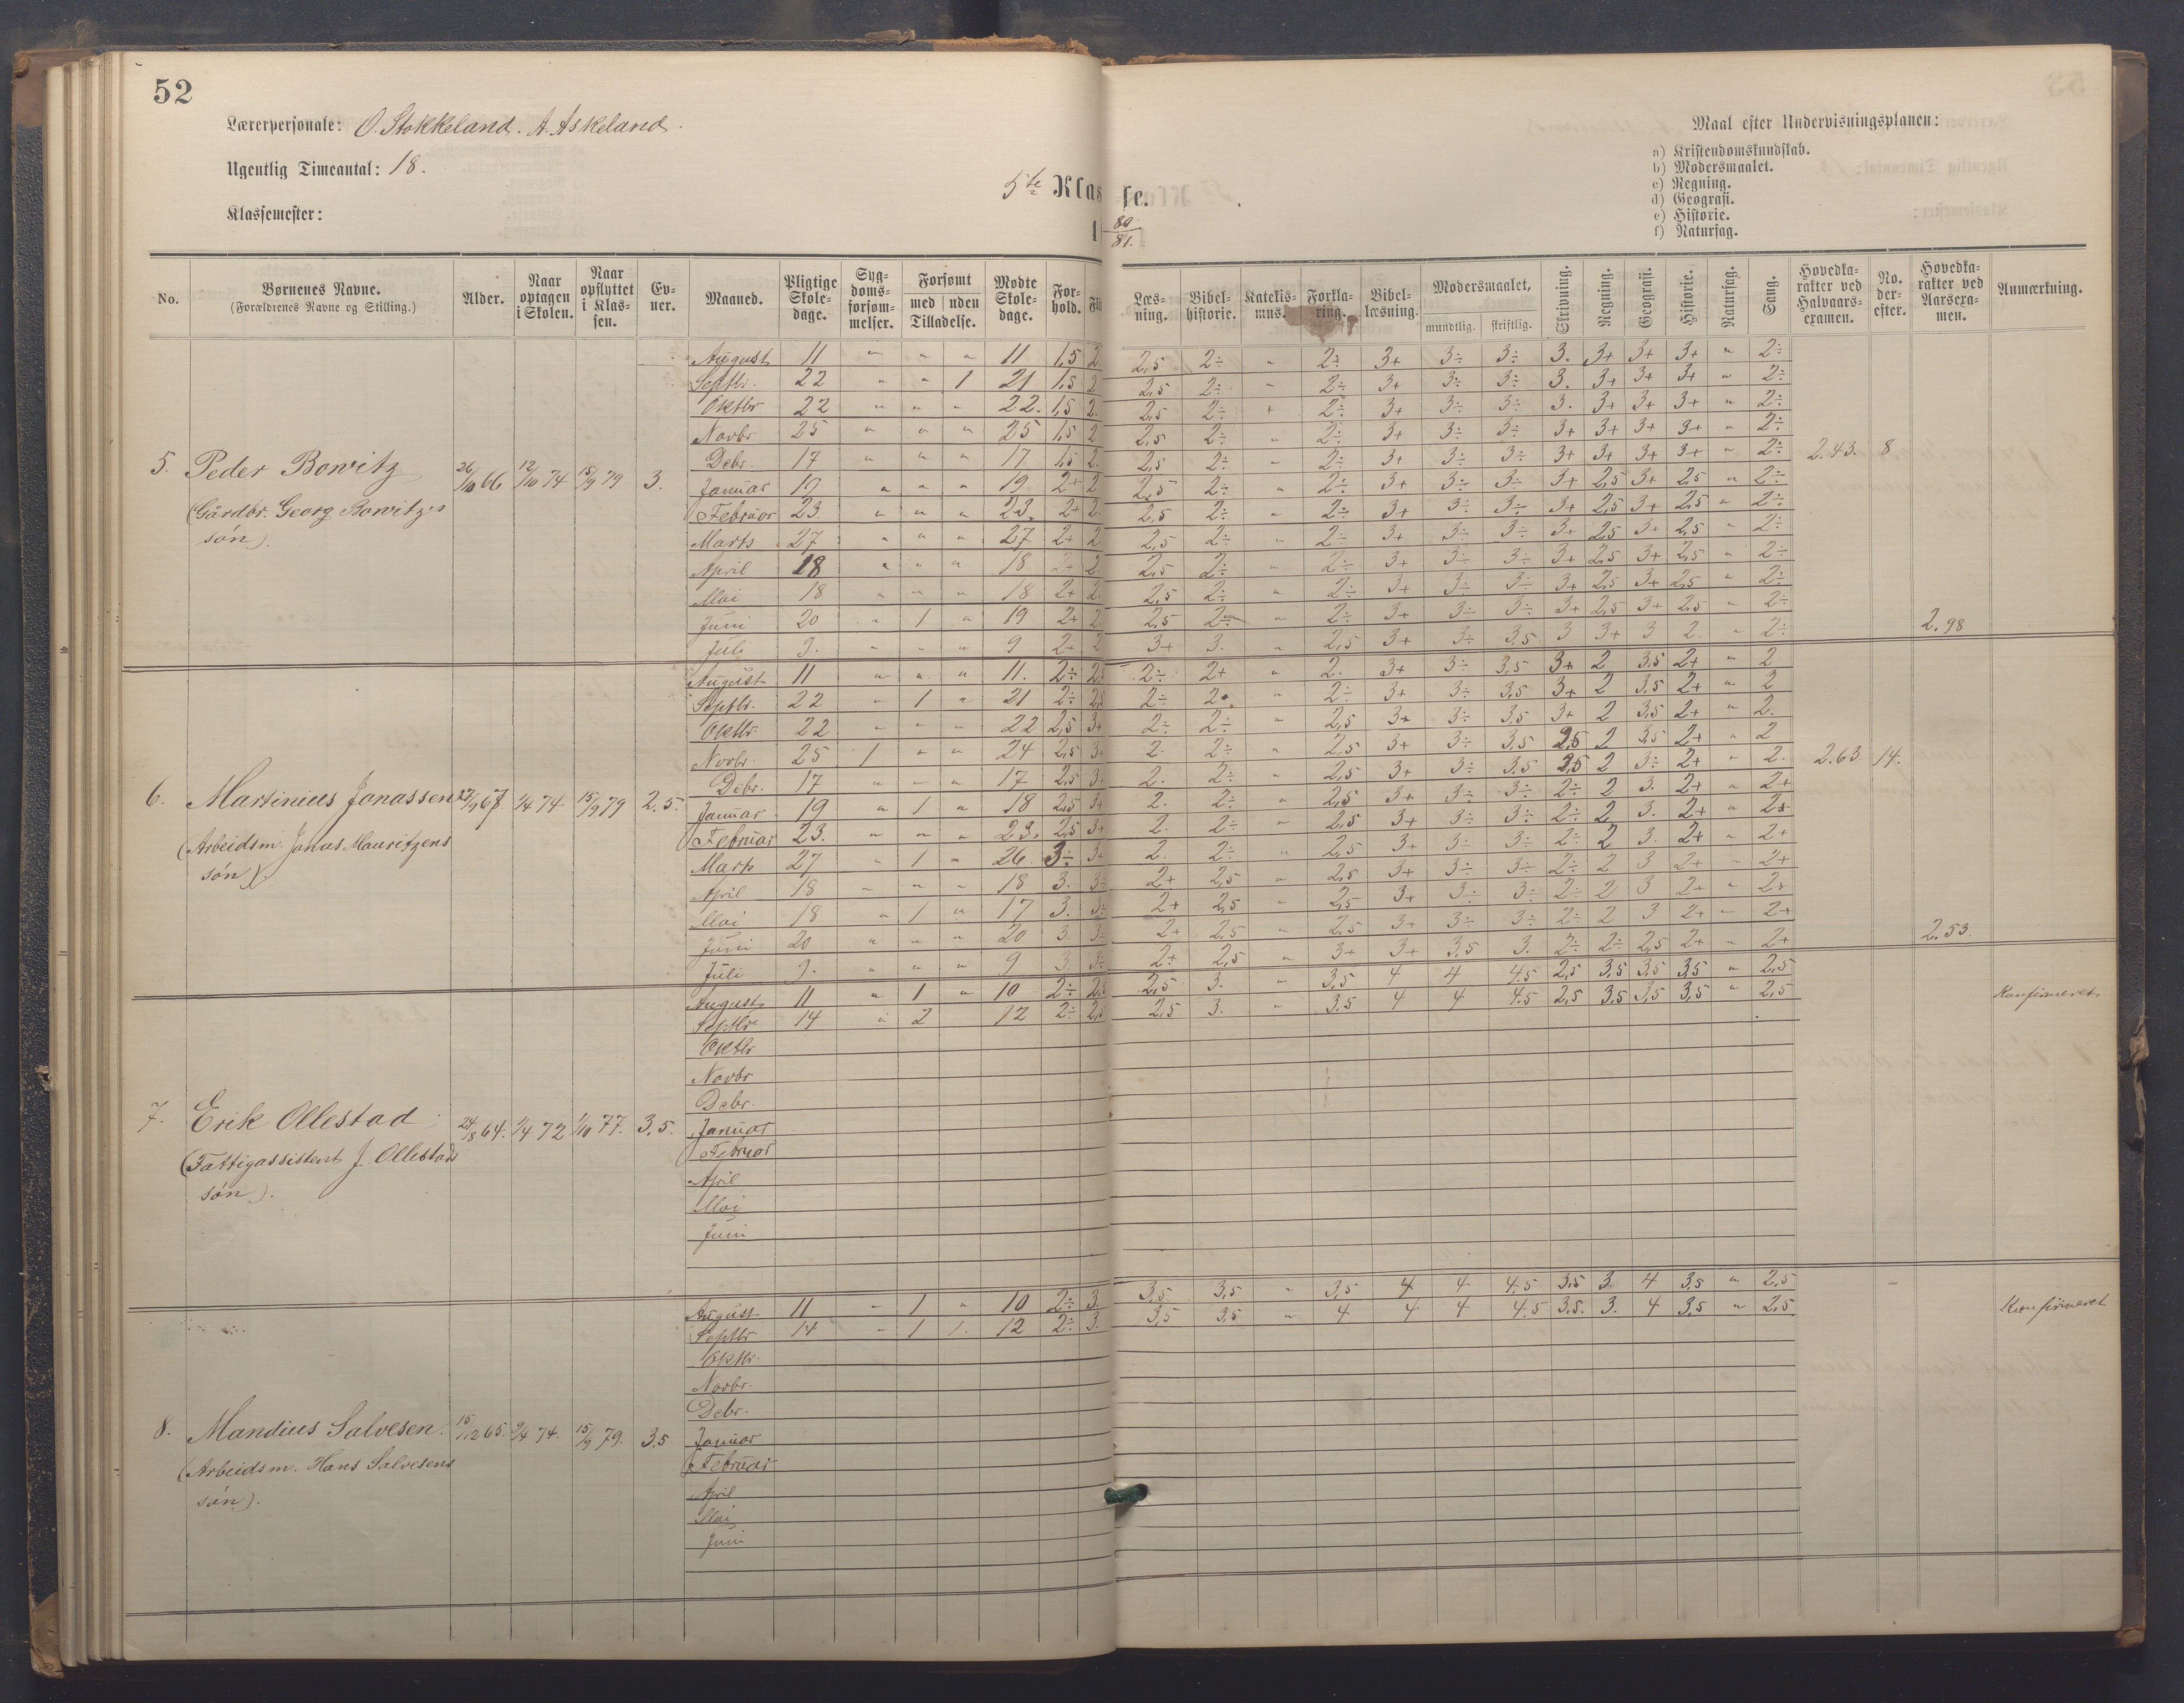 52
Lærerpersonale: O. Stokkeland. A. Askeland.
Ugentlig Timeantal: 18.
Klassemester:
5te Klasse.
80/81.
Maal efter Undervisningsplanen:
a) Kristendomskundskab.
b) Modersmaalet.
c) Regning.
d) Geografi.
e) Historie.
f) Naturfag.
No. | Børnenes Navne. (Forældrenes Navne og Stilling.) | Alder. | Naar optagen i Skolen. | Naar opflyttet i Klassen. | Evner. | Maaned. | Pligtige Skoledage. | Sygdomsforsømmelser. | Forsømt med Tilladelse. | uden Tilladelse. | Mødte Skoledage. | Forhold. | Læsning. | Bibelhistorie. | Katekismus. | Forklaring. | Bibellæsning. | Modersmaalet, mundtlig. | skriftlig. | Skrivning. | Regning. | Geografi. | Historie. | Naturfag. | Sang. | Hovedkarakter ved Halvaarsexamen. | No. derefter. | Hovedkarakter ved Aarsexamen. | Anmærkning.
5. Peder Bowitz 26/10 66 12/10 74 15/9 79 3. 2.43. 8 2.98
(Gårdbr. Georg Bowitz's
søn).
August 11 " " " 11 1,5 2 2,5 2÷ " 2÷ 3+ 3÷ 3÷ 3. 3+ 3+ 3+ " 2÷
Septbr. 22 " " 1 21 1,5 2 2,5 2÷ " 2÷ 3+ 3÷ 3÷ 3. 3+ 3+ 3+ " 2÷
Oktbr 22 " " " 22. 1,5 2. 2,5 2÷ + 2÷ 3+ 3÷ 3÷ 3. 3+ 3+ 3+ " 2÷
Novbr 25 " " " 25 1,5 2 2,5 2÷ " 2÷ 3+ 3÷ 3÷ 3+ 3+ 3+ 3+ " 2÷
Debr. 17 " " " 17 1,5 2. 2,5 2÷ " 2÷ 3+ 3÷ 3÷ 3+ 3+ 3+ 3+ " 2÷
Januar 19 " " " 19 2+ 2 2,5 2÷ " 2÷ 3+ 3÷ 3÷ 3+ 2,5 3+ 2,5 " 2÷
Februar 23. " " " 23. 2+ 2. 2,5 2÷ " 2÷ 3+ 3÷ 3÷ 3+ 2,5 3+ 2,5 " 2÷
Marts 27 " " " 27 2+ 2 2,5 2÷ " 2÷ 3+ 3÷ 3÷ 3+ 2,5 3+ 2,5 " 2÷
April 18 " " " 18 2+ 2. 2,5 2÷ " 2÷ 3+ 3÷ 3÷ 3+ 2,5 3+ 2,5 " 2÷
Mai 18 " " " 18 2+ 2. 2,5 2÷ " 2÷ 3+ 3÷ 3÷ 3+ 2,5 3+ 2,5 " 2÷
Juni 20 " 1 " 19 2+ 2 2,5 2÷ " 2÷ 3+ 3÷ 3÷ 3+ 2,5 3+ 2,5 " 2÷
Juli 9. " " " 9 2+ 2 3+ 3. " 2,5 3+ 3÷ 3,5 3 3+ 3 2. " 2÷
6. Martinius Jonassen 27/9 67 1/4 74 15/9 79 2.5. 2.63 14. 2.53.
(Arbeidsm. Jonas Mauritzens
søn).
August 11 " " " 11. 2÷ 2÷ 2+ " 2. 3+ 3÷ 3,5 3+ 2 3,5 2+ " 2
Septbr. 22 " 1 " 21 2÷ 2,5 2÷ 2. " 2÷ 3+ 3÷ 3,5 3+ 2 3,5 2+ " 2
Oktbr. 22 " " " 22 2,5 3+ 2÷ 2÷ " 2,5 3+ 3÷ 3,5 3+ 2 3,5 2+ " 2.
Novbr. 25 1 " " 24 2,5 3+ 2. 2÷ " 2,5 3+ 3÷ 3,5 2,5 2 3,5 2+ " 2
Debr. 17 " " " 17 2,5 3+ 2. 2÷ " 2,5 3+ 3÷ 3,5 2,5 2 3÷ 2+ " 2.
Januar 19 " 1 " 18 2,5 3+ 2. 2÷ " 2,5 3+ 3÷ 3÷ 2÷ 2 3. 2+ " 2+
Februar 23. " " " 23. 2,5 3+ 2. 2÷ " 2,5 3+ 3÷ 3÷ 2÷ 2 3. 2+ " 2+
Marts 27 " 1 " 26 3÷ 3+ 2. 2÷ " 2,5 3+ 3÷ 3÷ 2÷ 2 3. 2+ " 2+
April 18 " " " 18 3. 3÷ 2+ 2,5 " 2,5 3+ 3÷ 3÷ 2÷ 2 3 2+ " 2+
Mai 18 " 1 " 17 3. 3÷ 2+ 2,5 " 2,5 3+ 3÷ 3÷ 2÷ 2 3 2+ " 2+
Juni 20 " " " 20 3. 3÷ 2+ 2,5 " 2,5 3+ 3÷ 3÷ 2÷ 2 3 2+ " 2+
Juli 9. " " " 9 3. 3÷ 2+ 2,5 " 3+ 3+ 3,5 3. 2÷ 2÷ 2,5 2+ " 2+
7. Erik Ollestad 24/8 64. 1/4 72 1/10 77. 3,5. Konfirmeret
(Fattigassistent J. Ollestads
søn).
August 11 " 1 " 10 2÷ 2,5 2,5 3. " 3,5 4 4 4,5 2,5 3,5 3,5 3,5 " 2,5
Septbr 14 " 2 12 2÷ 2,5 2,5 3. " 3,5 4 4 4,5 2,5 3,5 3,5 3,5 " 2,5
Oktbr
Novbr
Debr.
Januar
Februar
April
Mai
Juni
8. Mandius Salvesen. 15/12 65. 9/4 74. 15/9 79. 3.5 Konfirmeret
(Arbeidsm. Hans Salvesens
søn).
August 11 " 1 " 10 2÷ 3. 3,5 3,5 " 3,5 4 4 4,5 3,5 3 4 3,5 " 2,5
Septbr 14 " 1 1. 12 2÷ 3. 3,5 3,5 " 4 4 4 4.5 3,5. 3. 4 3,5 " 2,5
Oktbr.
Novbr.
Debr.
Januar
Februar
April
Mai
Juni